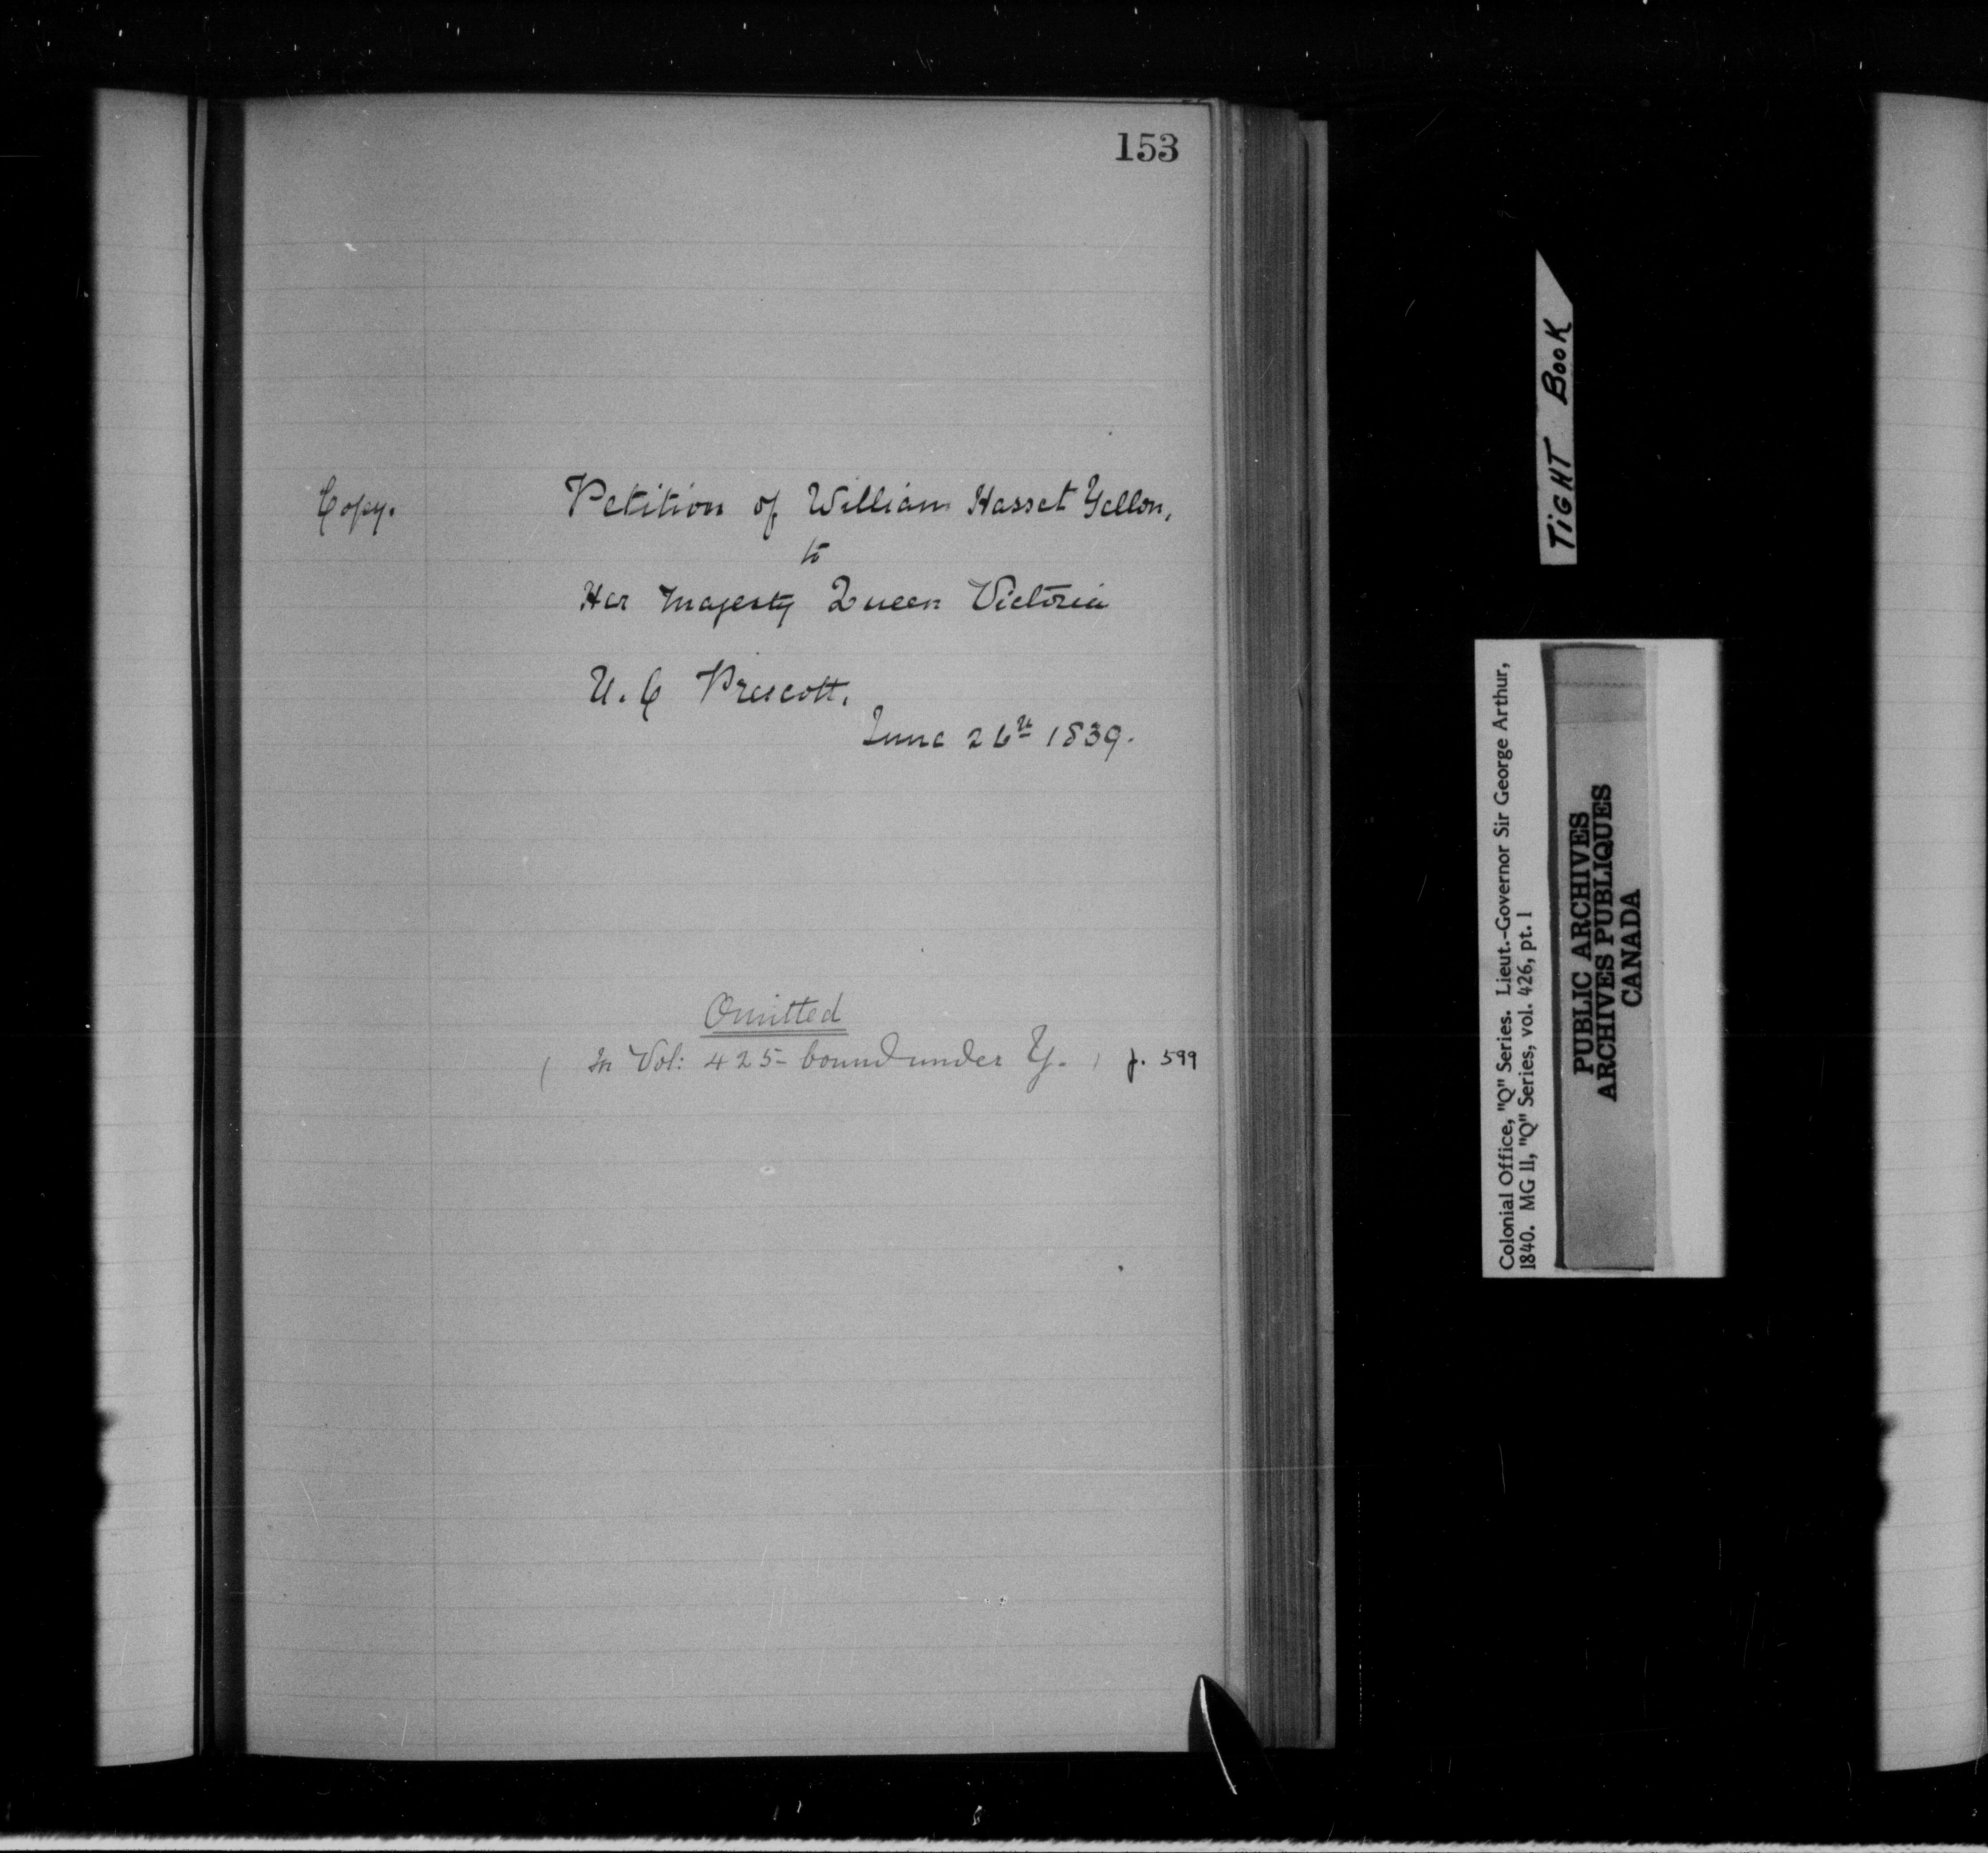 153
Copy.
Petition of William Hasset Yellon,
to
Her Majesty Queen Victoria
U.C Prescott.
June 26th 1839.
Omitted
( In Vol: 425- bound under Y. ) p. 599
TiGHT BooK
Colonial Office, "Q" Series. Lieut.-Governor Sir George Arthur,
1840. MG 11, "Q" Series, vol. 426, pt. 1
PUBLIC ARCHIVES
ARCHIVES PUBLIQUES
CANADA